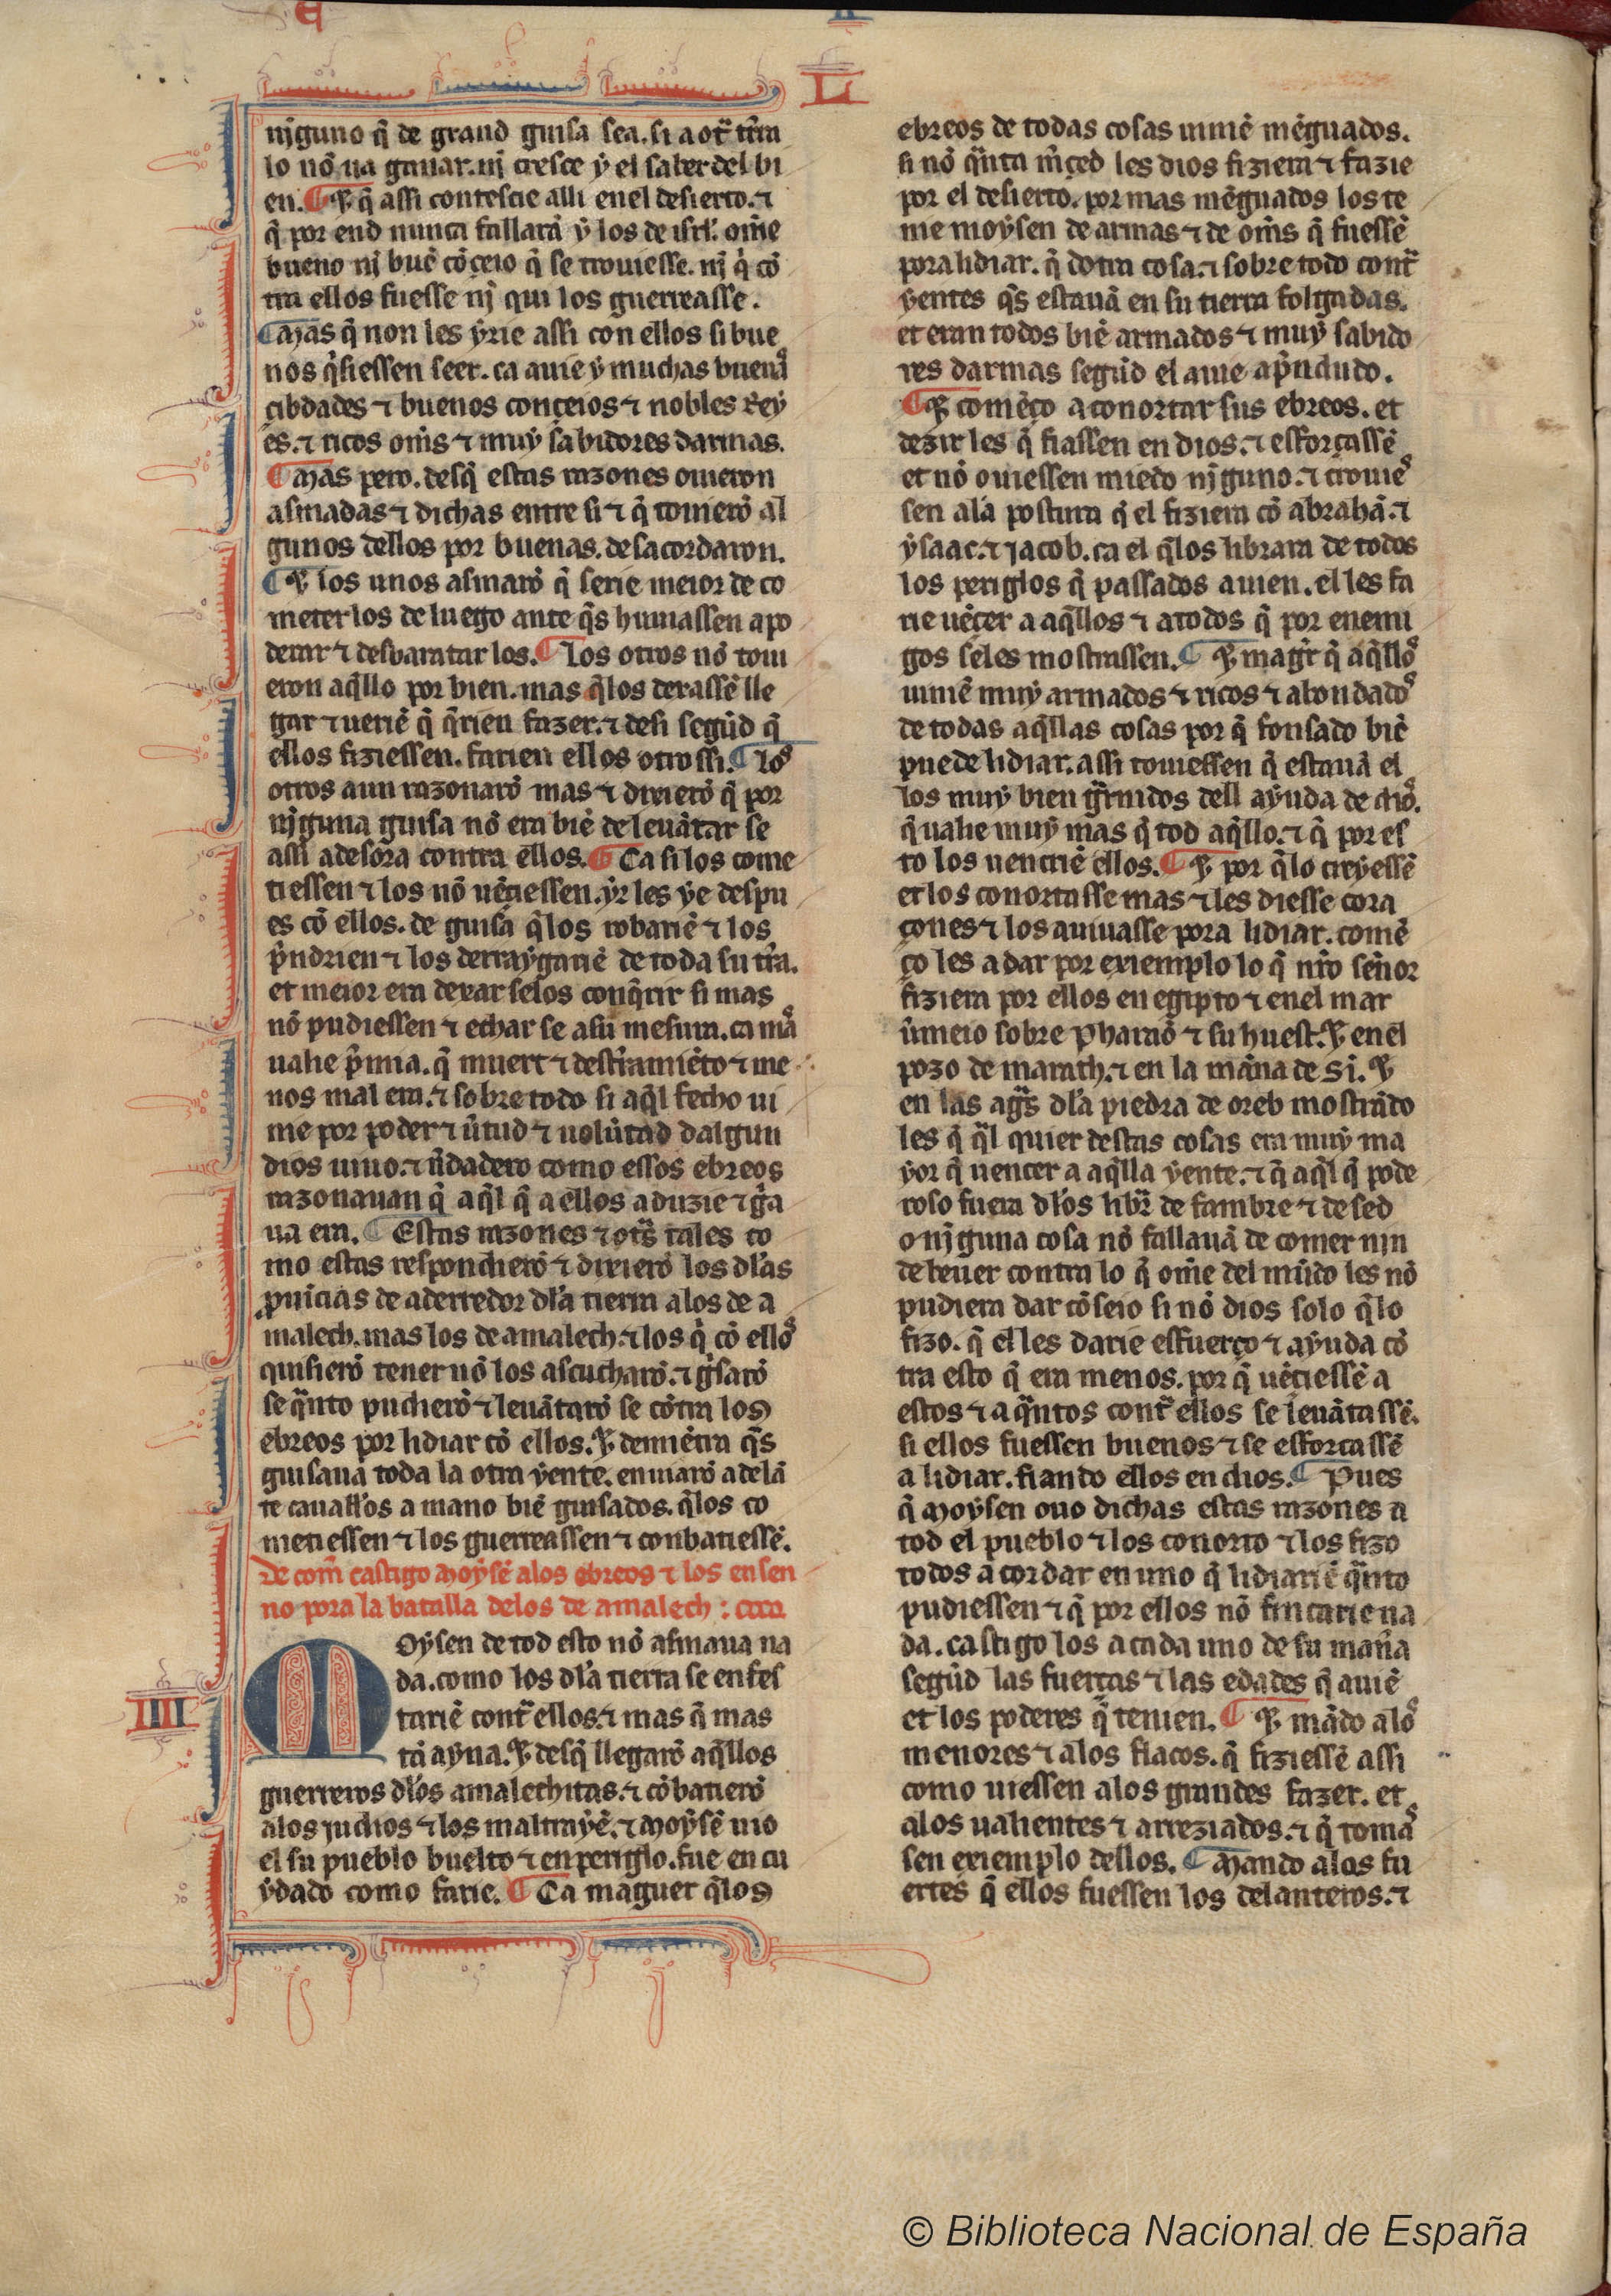 L
nỉguno q̃ de grand guisa sea. si a ot̃ tr̃ra
lo nõ ua ganar. nĩ cresce ẏ el saber del bi
en. ¶ ⁊ q̃ assi contescie alli enel desierto. ⁊
q̃ por end nunca fallarã ẏ los de isrl̃. om̃e
bueno nĩ buẽ cõçeio q̃ se trouiesse. nĩ q̃ cõ
tra ellos fuesse nĩ qui los guerreasse.
¶ Mas q̃ non les ẏrie assi con ellos si bue
nos q̃siessen seer. ca auie ẏ muchas buenas
çibdades ⁊ buenos conçeios ⁊ nobles Reẏ
es. ⁊ ricos om̃s ⁊ muẏ sabidores darmas.
¶ Mas pero. desq̃ estas razones ouieron
asmadas ⁊ dichas entre si ⁊ q̃ touierõ al
gunos dellos por buenas. desacordaron.
¶ ⁊ los unos asmarõ q̃ serie meior de co
meter los de luego ante q̃s huuiassen apo
derar ⁊ desbaratar los. ¶ Los otros nõ toui
eron aq̃llo por bien. mas q̃los dexassẽ lle
gar ⁊ ueriẽ q̃ q̃rien fazer. ⁊ desi segũd q̃
ellos fiziessen. farien ellos otrossi. ¶ Los
otros aun razonarõ mas ⁊ dixierõ q̃ por
nĩguna guisa nõ era biẽ de leuãtar se
assi adesora contra ellos. ¶ Ca si los come
tiessen ⁊ los nõ uẽciessen. ẏr les ẏe despu
es cõ ellos. de guisa q̃los robariẽ ⁊ los
p̃ndrien ⁊ los derraẏgariẽ de toda su tr̃ra.
et meior era dexar selos conq̃rir si mas
nõ pudiessen ⁊ echar se asu mesura. ca mas
ualie p̃mia. q̃ muert ⁊ destr̃uimiẽto ⁊ me
nos mal era. ⁊ sobre todo si aq̃l fecho ui
nie por poder ⁊ ũtud ⁊ uolũtad dalgun
dios uiuo. ⁊ ũdadero como essos ebreos
razonauan q̃ aq̃l q̃ a ellos aduzie ⁊ g̃a
ua era. ¶ Estas razones ⁊ ot̃s tales co
mo estas respondierõ ⁊ dixierõ los dl̃as
puĩcias de aderredor dl̃a tierra alos de a
malech. mas los de amalech. ⁊ los q̃ cõ ellos
quisierõ tener nõ los ascucharõ. ⁊ g̃sarõ
se q̃nto pudierõ ⁊ leuãtarõ se cõtra los
ebreos por lidiar cõ ellos. ⁊ demiẽtra q̃s
guisaua toda la otra ẏente. enuiarõ adelã
te cauallos a mano biẽ guisados. q̃los co
metiessen ⁊ los guerreassen ⁊ conbatiessẽ.
De com̃ castigo Moẏsẽ alos ebreos ⁊ los ensen
no pora la batalla delos de amalech :
IIII
Moẏsen de tod esto nõ asmaua na
da. como los dl̃a tierra se enfes
tariẽ cont̃ ellos. ⁊ mas q̃ mas
tã aẏna. ⁊ desq̃ llegarõ aq̃llos
guerreros dl̃os amalechitas. ⁊ cõbatierõ
alos judios ⁊ los maltraẏẽ. ⁊ Moẏsẽ uio
el su pueblo buelto ⁊ en periglo. fue en cu
ẏdado como farie. ¶ Ca maguer q̃los
ebreos de todas cosas uiniẽ mẽguados.
si nõ q̃nta m̃çed les dios fiziera ⁊ fazie
por el desierto. por mas mẽguados los te
nie moẏsen de armas ⁊ de om̃s q̃ fuessẽ
pora lidiar. q̃ dotra cosa. ⁊ sobre todo cont̃
ẏentes q̃s estauã en su tierra folgadas.
et eran todos biẽ armados ⁊ muẏ sabido
res darmas segũd el auie ap̃ndudo.
¶ ⁊ comẽço a conortar sus ebreos. et
dezir les q̃ fiassen en dios. ⁊ esforçassẽ
et nõ ouiessen miedo nĩguno. ⁊ trouies
sen ala postura q̃ el fiziera cõ abrahã. ⁊
ẏsaac. ⁊ jacob. ca el q̃los librara de todos
los periglos q̃ passados auien. el les fa
rie uẽçer a aq̃llos ⁊ atodos q̃ por enemi
gos seles mostrassen. ¶ ⁊ mag̃r q̃ aq̃llos
uiniẽ muẏ armados ⁊ ricos ⁊ abondados
de todas aq̃llas cosas por q̃ fonsado biẽ
puede lidiar. assi touiessen q̃ estauã el
los muẏ bien g̃rnidos dell aẏuda de dios.
q̃ ualie muẏ mas q̃ tod aq̃llo. ⁊ q̃ por es
to los uencriẽ ellos. ¶ ⁊ por q̃lo creẏessẽ
et los conortasse mas ⁊ les diesse cora
çones ⁊ los auiuasse pora lidiar. comẽ
ço les a dar por exiemplo lo q̃ nr̃o sẽnor
fiziera por ellos en egipto ⁊ enel mar
ũmeio sobre Pharaõ ⁊ su huest. ⁊ enel
pozo de marath. ⁊ en la mãna de Si. ⁊
en las ag̃s dl̃a piedra de oreb mostrãdo
les q̃ q̃l quier destas cosas era muẏ ma
ẏor q̃ uencer a aq̃lla ẏente. ⁊ q̃ aq̃l q̃ pode
roso fuera dl̃os libr̃ de fambre ⁊ de sed
o nĩguna cosa nõ fallauã de comer nin
de beuer contra lo q̃ om̃e del mũdo les nõ
pudiera dar cõseio si nõ dios solo q̃lo
fizo. q̃ el les darie esfuerço ⁊ aẏuda cõ
tra esto q̃ era menos. por q̃ uẽciessẽ a
estos ⁊ a q̃ntos cont̃ ellos se leuãtassẽ.
si ellos fuessen buenos ⁊ se esforçassẽ
a lidiar. fiando ellos en dios. ¶ Pues
q̃ Moẏsen ouo dichas estas razones a
tod el pueblo ⁊ los conorto ⁊ los fizo
todos acordar en uno q̃ lidiariẽ q̃nto
pudiessen ⁊ q̃ por ellos nõ fincarie na
da. castigo los a cada uno de su mañra
segũd las fuerças ⁊ las edades q̃ auiẽ
et los poderes q̃ tenien. ¶ ⁊ mãdo alos
menores ⁊ alos flacos. q̃ fiziessẽ assi
como uiessen alos grandes fazer. et
alos ualientes ⁊ arreziados. ⁊ q̃ tomas
sen exiemplo dellos. ¶ Mando alos fu
ertes q̃ ellos fuessen los delanteros. ⁊
© Biblioteca Nacional de España